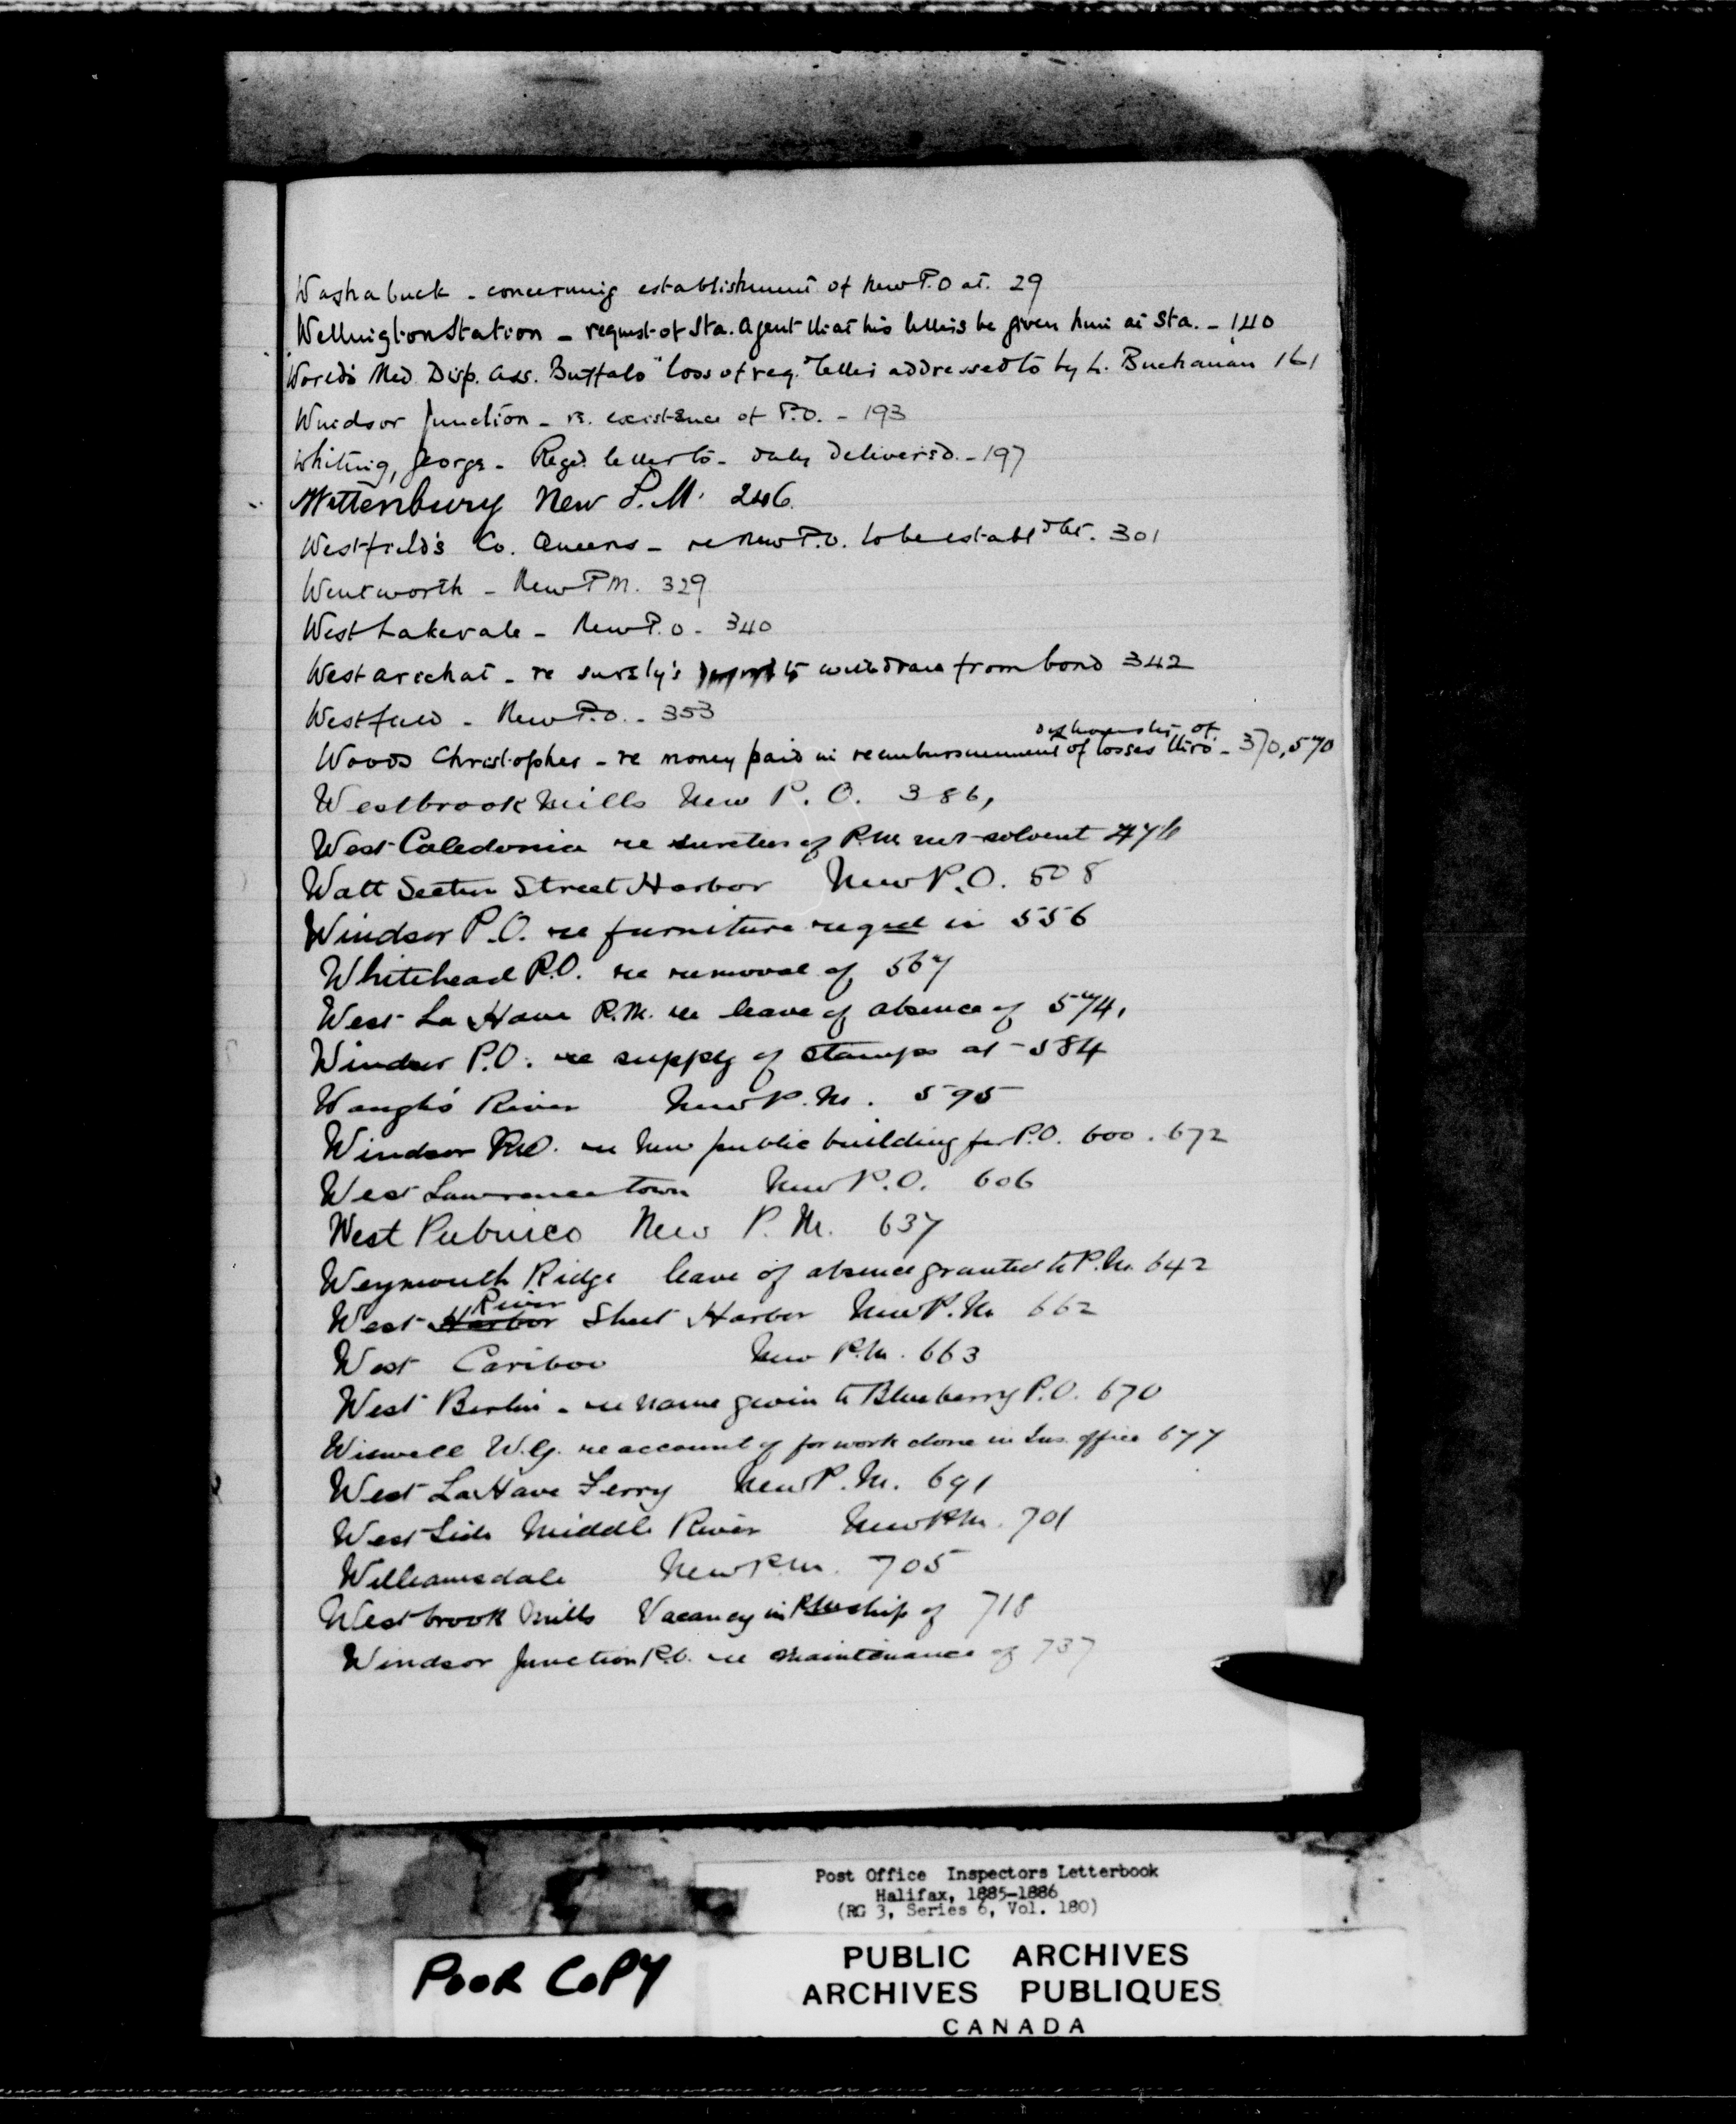 Washabuck - concerning establishment of new P.O at. 29
Wellington Station - request of Sta. Agent that his letters be given him at Sta. - 140
"World's Med. Disp. Ass. Buffalo" loss of reg.d letter addressed to by L. Buchanan 161
Windsor Junction - re. existence of P.O. - 193
Whiting, George - Regd. letter to - duly delivered - 197
Wittenbury New P.M. 246
Westfield's Co. Queens - re new P.O. to be establd at. 301
Wentworth - New P.M. 329
West Lakevale - New P.O. - 340
West Arichat - re surety's to withdraw from bond 342
Westfield - New P.O. - 353
dishonesty of
Woods Christopher - re money paid in reimbursement of losses thro' - 370, 570
Westbrook Mills New P.O. 386,
West Caledonia re sureties of P.M. not solvent 476
Watt Section Street Harbor New P.O. 508
Windsor P.O. re furniture reqed in 556
Whitehead P.O. re removal of 567
West La Have P.M. re leave of absence of 574,
Windsor P.O. re supply of stamps at - 584
Waugh's River New P.M. 595
Windsor P.O. re new public building for P.O. 600. 672
West Lawrencetown New P.O. 606
West Pubnico New P.M. 637
Weymouth Ridge leave of absence granted to P.M. 642
River
West Harbor Sheet Harbor New P.M. 662
West Caribou New P.M. 663
West Berlin - re name given to Blueberry P.O. 670
Wiswell W.G. re account of for work done in Ins. office 677
West LaHave Ferry New P.M. 691
West Side Middle River New P.M. 701
Williamsdale New P.M. 705
Westbrook Mills Vacancy in PMship of 718
Windsor Junction P.O. re maintenance of 737
Post Office Inspectors Letterbook
Halifax, 1885-1886
(RG 3, Series 6, Vol. 180)
POOR COPY
PUBLIC ARCHIVES
ARCHIVES PUBLIQUES
CANADA